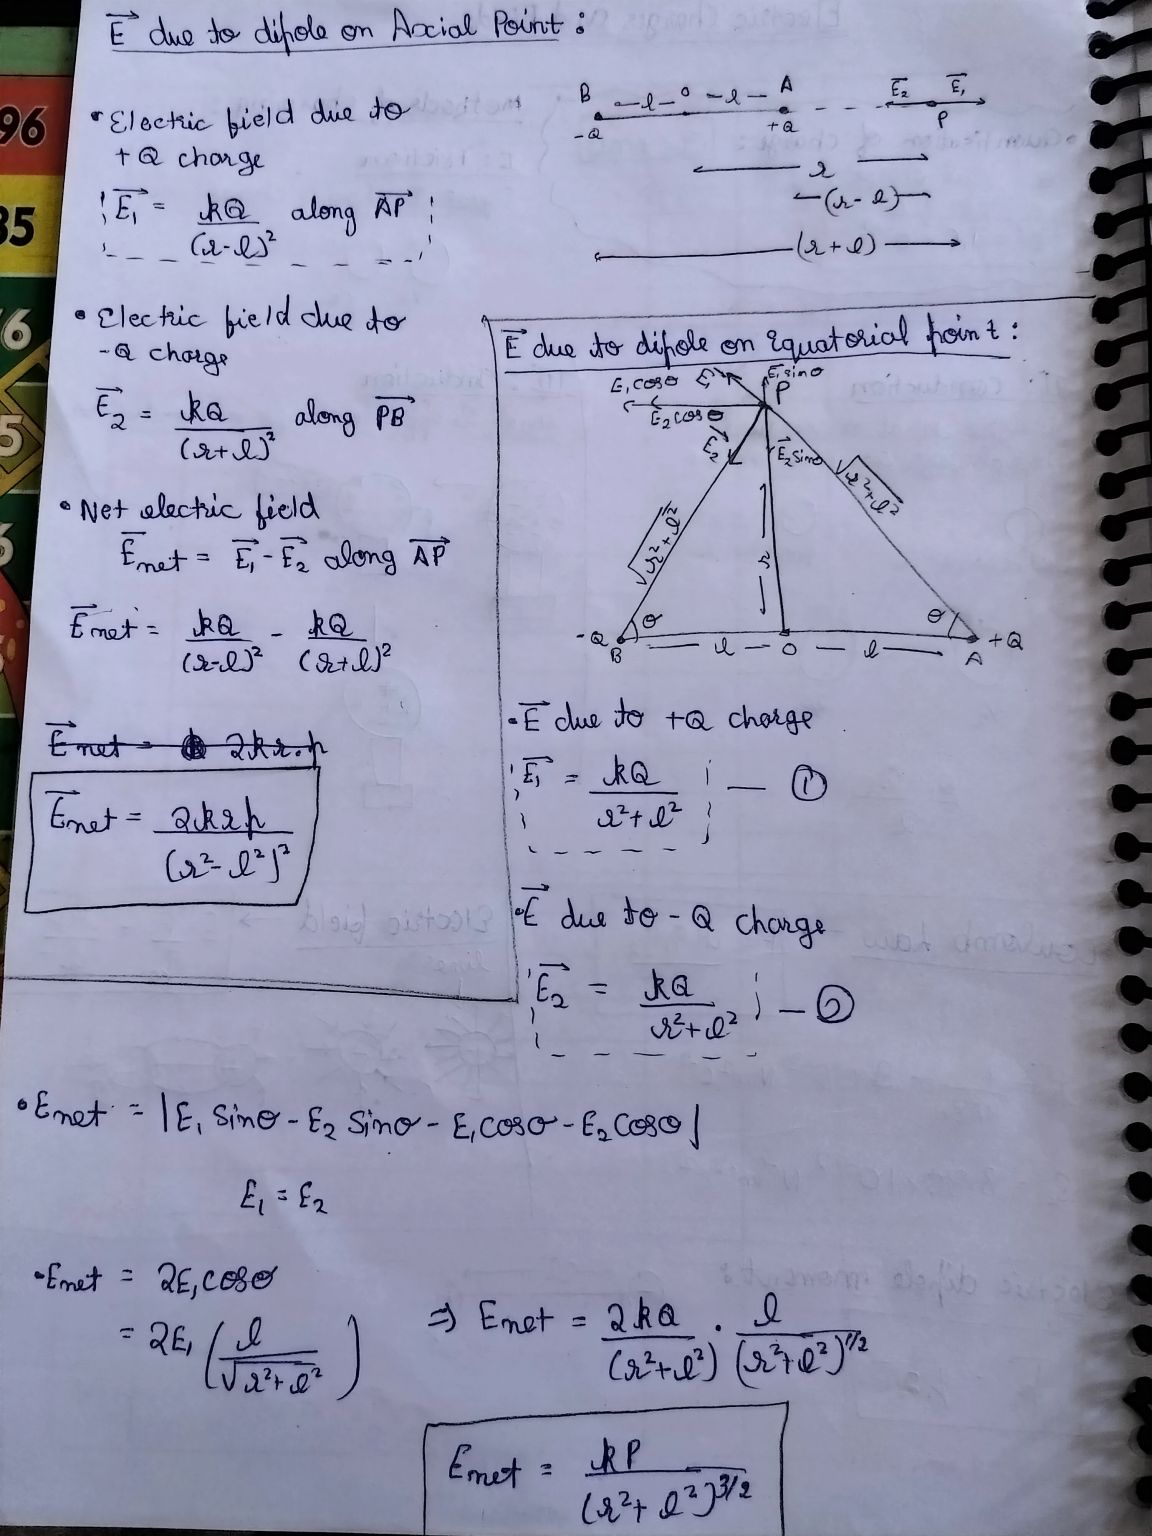 E⃗ due to dipole on Axial Point :
B -l- o -l- A E⃗₂ E⃗₁
-Q +Q P
r
(r-l)
(r+l)
• Electric field due to
+Q charge
E⃗₁ = kQ/(r-l)² along A⃗P⃗
• Electric field due to
-Q charge
E⃗₂ = kQ/(r+l)² along P⃗B⃗
• Net electric field
E⃗net = E⃗₁ - E⃗₂ along A⃗P⃗
E⃗net = kQ/(r-l)² - kQ/(r+l)²
E⃗net = 2kr.p
E⃗net = 2krp/(r²-l²)²
E⃗ due to dipole on Equatorial point :
E₁cosθ E⃗₁ E⃗₁sinθ
P
E₂cosθ
E⃗₂ E⃗₂sinθ
√r²+l² r √r²+l²
θ θ
-Q B l O l A +Q
• E⃗ due to +Q charge
E⃗₁ = kQ/r²+l² — ①
• E⃗ due to -Q charge
E⃗₂ = kQ/r²+l² — ②
• Enet = |E₁ Sinθ - E₂ Sinθ - E₁cosθ - E₂Cosθ|
E₁ = E₂
• Enet = 2E₁cosθ
= 2E₁ (l/√r²+l²)
⇒ Enet = 2kQ/(r²+l²) . l/(r²+l²)^1/2
Enet = kP/(r²+l²)^3/2
96
35
6
5
6